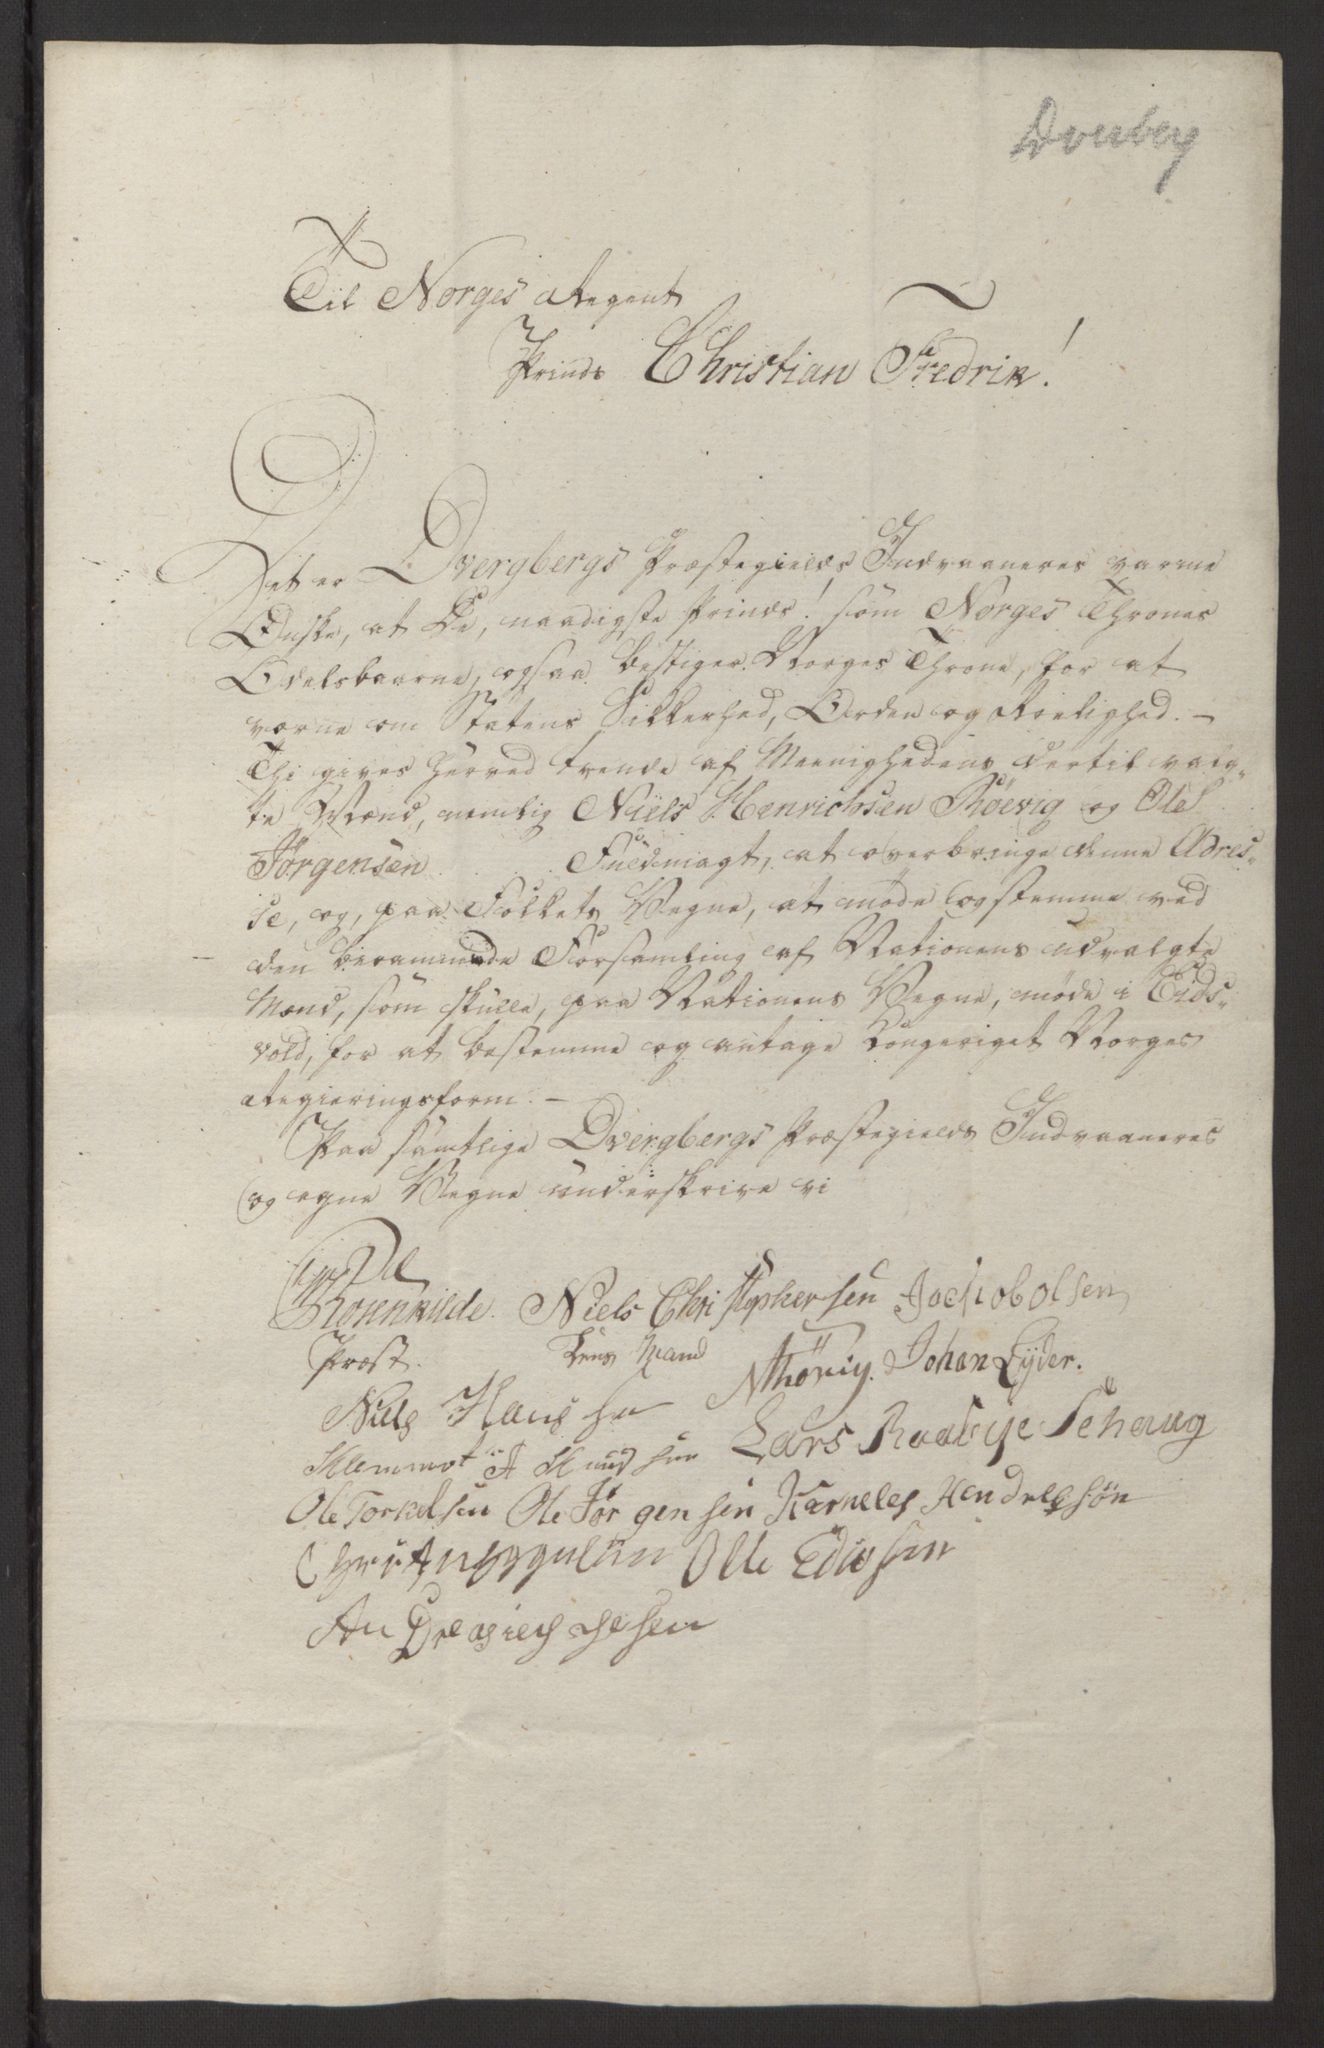 Dverberg
Til Norges Regent
Prinds Christian Fredrik!
Det er Dvergbergs Præstegields Indvaaneres varme
Ønske, at De, naadigste Prinds! som Norges Thrones
Odelsbaarne, ogsaa bestiger Norges Throne, for at
værne om Statens Sikkerhed, Orden og Roelighed. –
Thi gives herved tvende af Meenighedens dertil valg-
te Mænd, nemlig Niels Henrichsen Röevig og Ole
Jørgensen Fuldmagt, at overbringe denne Adres-
se, og, paa Folkets Vegne, at møde og stemme ved
den berammede Forsamling af Nationens udvalgte
Mænd, som skulle, paa Nationens Vegne, møde i Eids-
vold, for at bestemme og antage Kongeriget Norges
Regieringsform. –
Paa samtlige Dvergbergs Præstegields Indvaaneres
og egne Vegne underskrive vi
Rosenkilde. Niels Christophersen Jachob Olsen
Præst. Lens Mand NThøring. Johan Eyder.
Niels Hans sen
Klemmet A Knud sen Lars Raabye Sehaug
Ole Torkelsen Ole Jørgensen Karneles Hendrechsøn
Olle Edissen